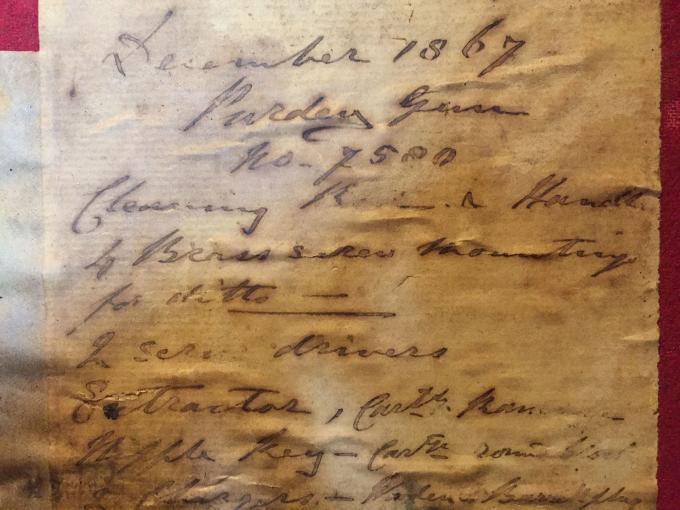 December 1867
Purdey Gun
No. 7580
Cleaning & Handle
4 Brass screw mountings
for ditto —
2 screw drivers
Extractor, Cartg.
Nipple Key —
2 Chargers —